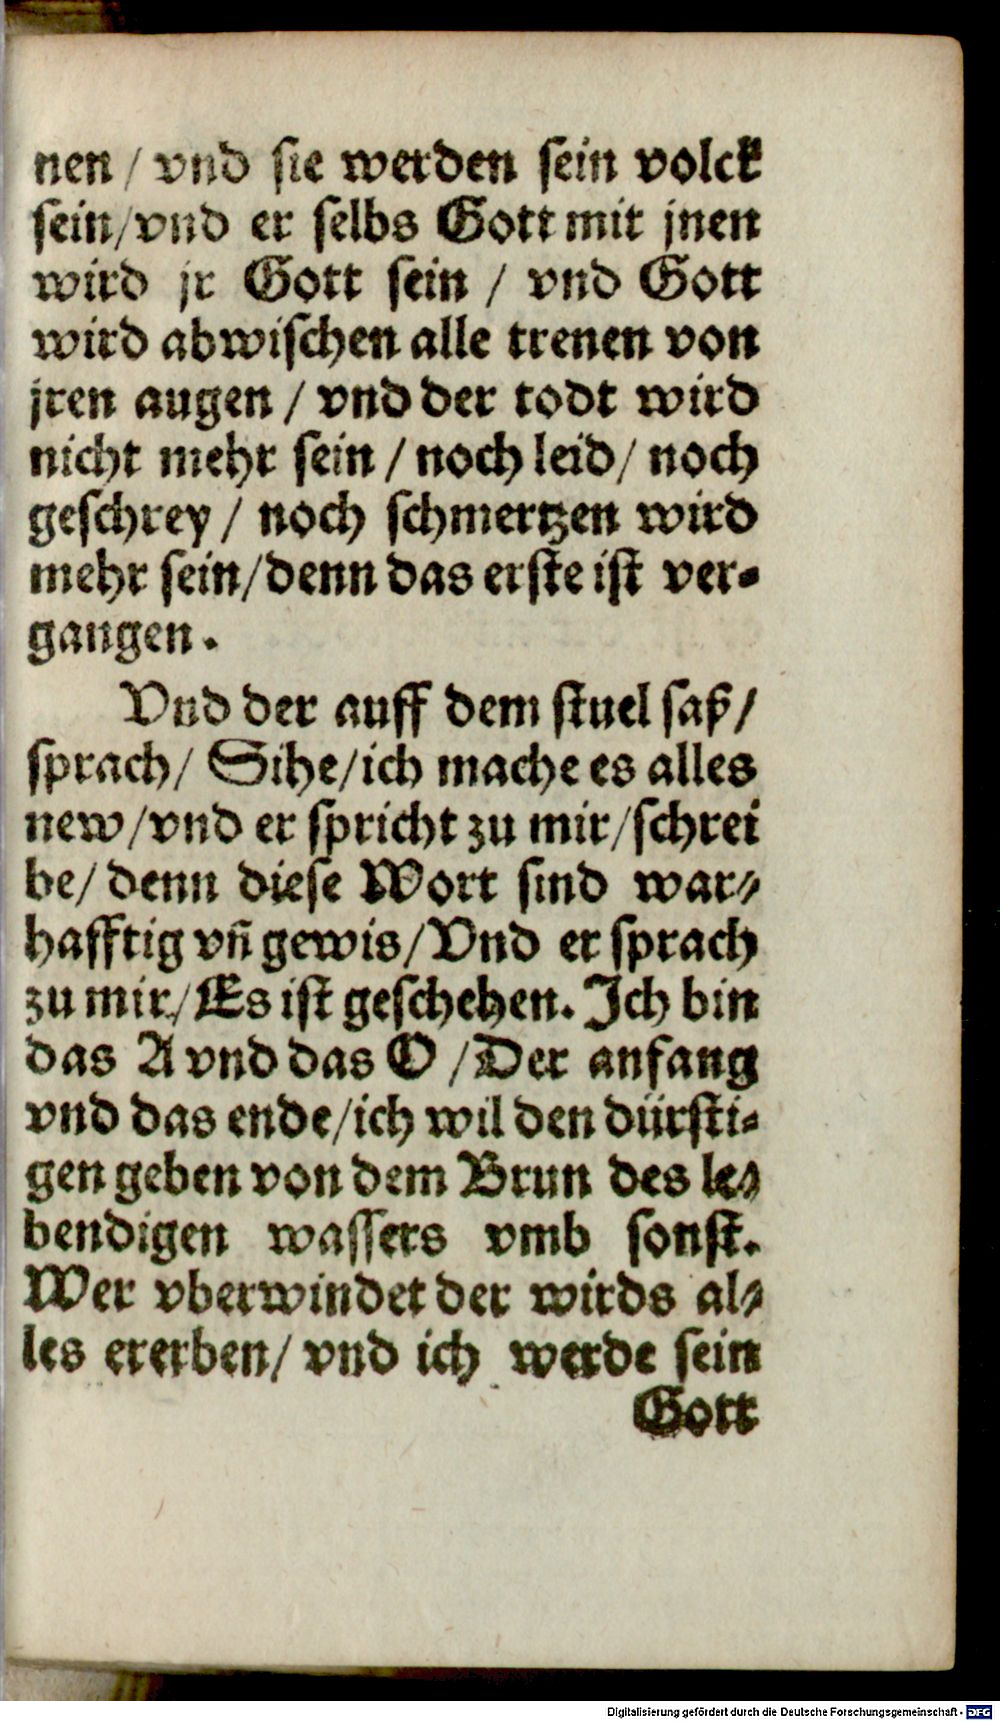 nen / vnd sie werden sein volck
sein/vnd er selbs Gott mit jnen
wird jr Gott sein / vnd Gott
wird abwischen alle trenen von
jren augen / vnd der todt wird
nicht mehr sein / noch leid/ noch
geschrey / noch schmertzen wird
mehr sein/denn das erste ist ver-
gangen.
Vnd der auff dem stuel saß/
sprach/ Sihe/ich mache es alles
new/vnd er spricht zu mir/schrei
be/ denn diese Wort sind war-
hafftig vñ gewis/Vnd er sprach
zu mir/Es ist geschehen. Ich bin
das A vnd das O /Der anfang
vnd das ende/ich wil den dürsti-
gen geben von dem Brun des le-
bendigen wassers vmb sonst.
Wer vberwindet der wirds al-
les ererben/ vnd ich werde sein
Gott
Digitalisierung gefördert durch die Deutsche Forschungsgemeinschaft - DFG